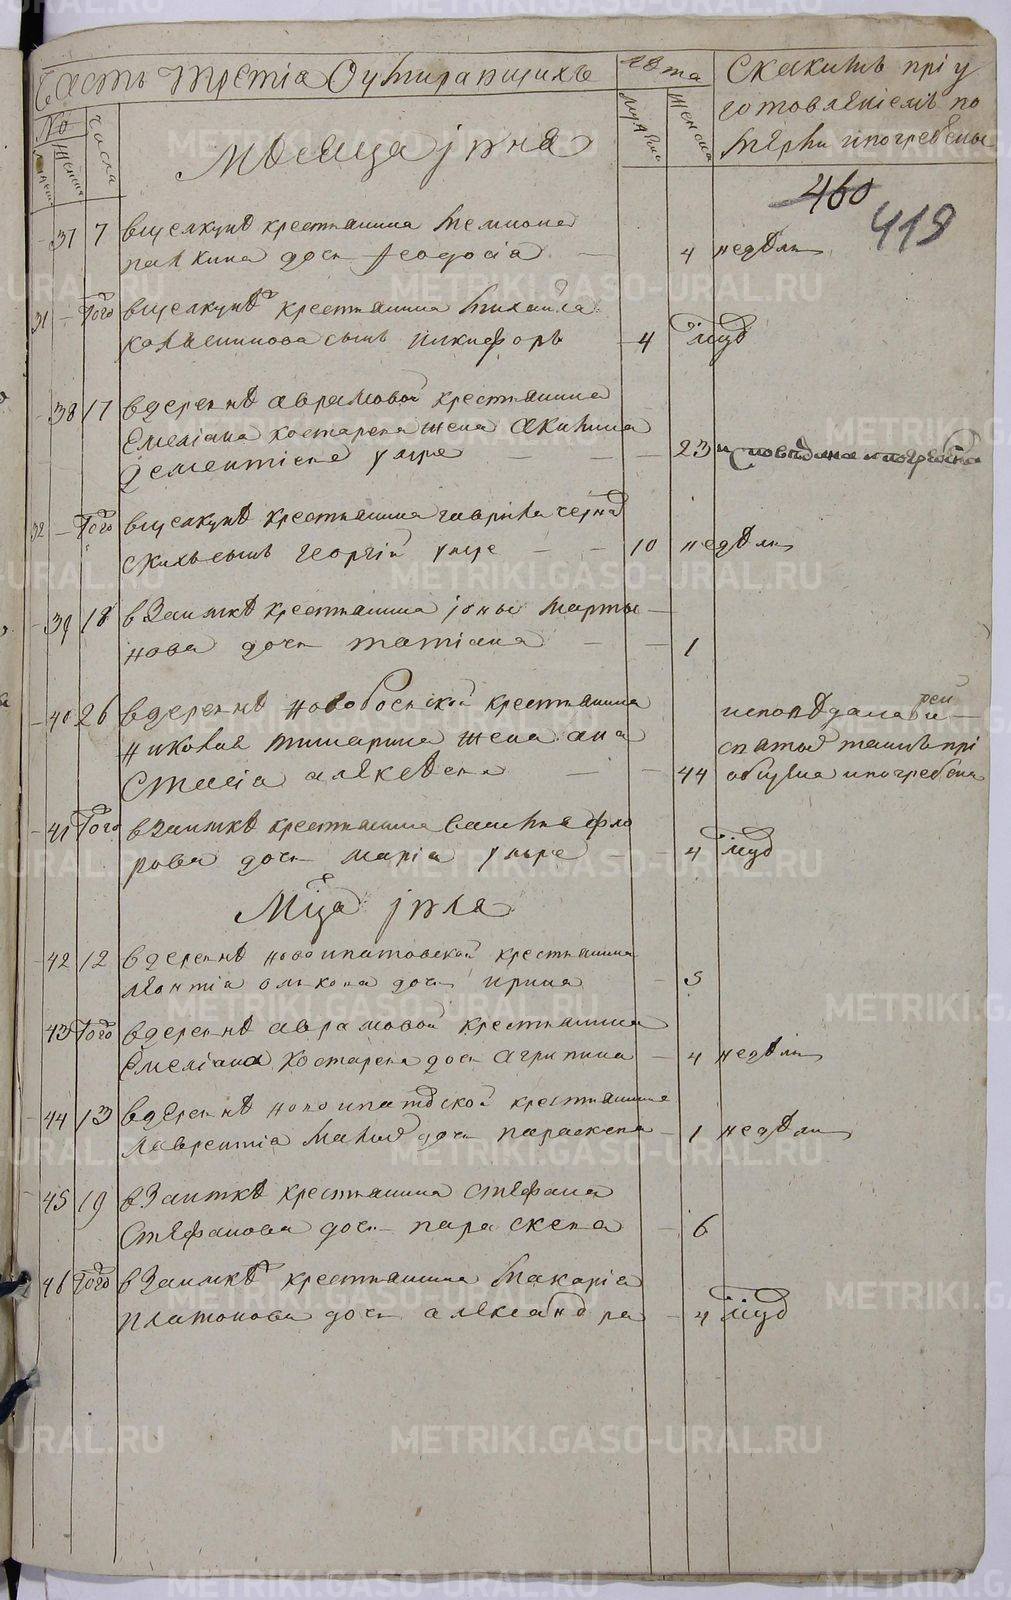 Часть третіа Оумирающихъ
Лѣта
Скакимъ пріу
готовленіемъ по
мерли ипогребены
No
числа
мужеска
женска
Мѣсяца іюня
460
419
37 7 вщелкунѣ крестьянина
дочь Феодосіа 4 недѣли
31 Того вщелкунѣ крестьянина Михаила
сынъ Никифоръ 4 мцд
38 17 вдеревнѣ аврамовой крестьянина
Емеліана Костарева жена акилина
Дементіева умре 23 исповѣдана ипогребена
32 Того вщелкунѣ крестьянина гаврила черно
сынъ Георгій умре 10 недѣли
39 18 взаимкѣ крестьянина іоны Марты
нова дочь татіана 1
40 26 вдеревнѣ крестьянина
Николая жена ана
стасіа алексѣева 44
исповѣдана
спамятію прі
общена ипогребена
41 Того взаимкѣ крестьянина Василіа фло
рова дочь маріа умре 4 мцд
Мца іюля
42 12 вдеревнѣ новоипатовской крестьянина
леонтіа дочь ирина 3
43 Того вдеревнѣ аврамовой крестьянина
Емеліана Костарева дочь агрипина 4 недѣли
44 13 вдеревнѣ новоипатовской крестьянина
лаврентіа дочь параскева 1 недѣли
45 19 взаимкѣ крестьянина стефана
Стефанова дочь параскева 6
46 Того взаимкѣ крестьянина Макаріа
платонова дочь александра 4 мцд
METRIKI.GASO-URAL.RU